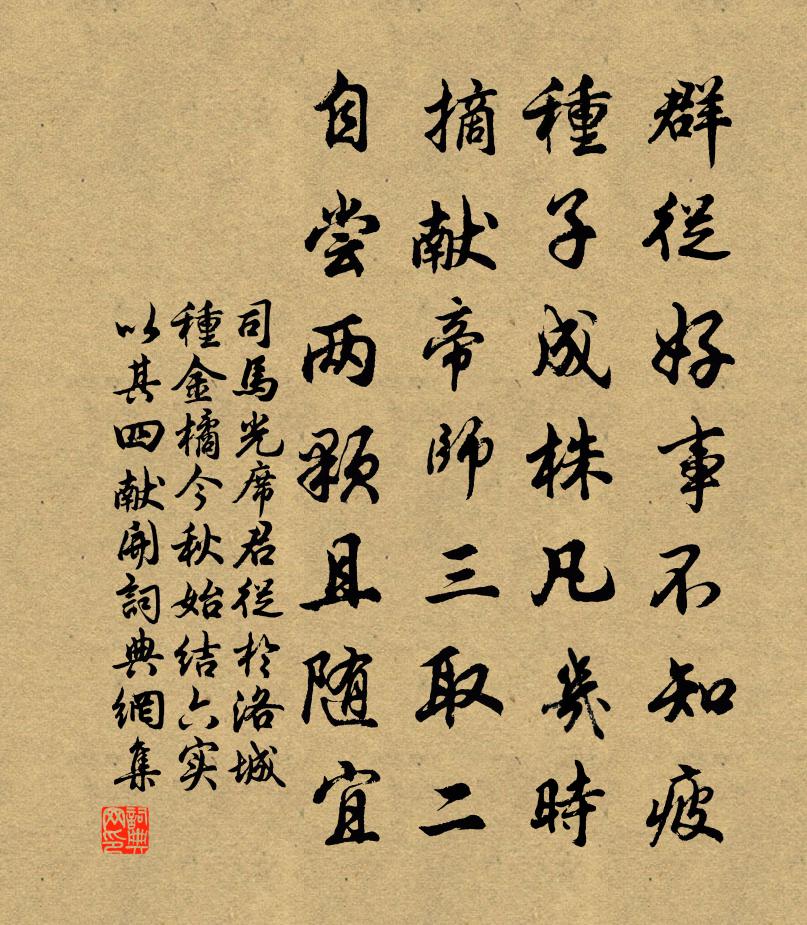 群從好事不知疲
種子成株凡幾時
摘献帝師三取二
自尝两颗且随宜
司馬光席君從於洛城
種金橘今秋始结六实
以其四献開詞典網集
詞典网印